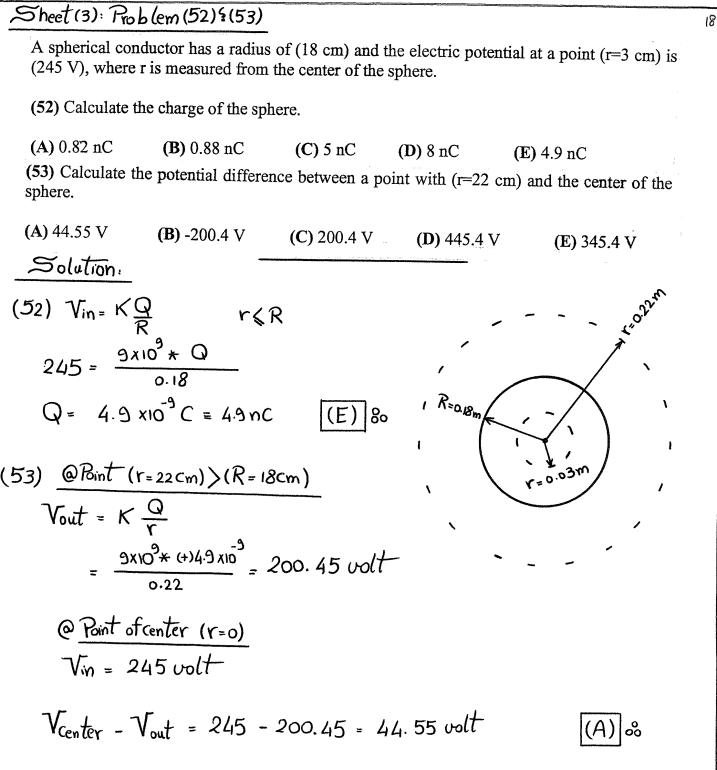 Sheet(3): Problem (52) & (53)
18
A spherical conductor has a radius of (18 cm) and the electric potential at a point (r=3 cm) is
(245 V), where r is measured from the center of the sphere.
(52) Calculate the charge of the sphere.
(A) 0.82 nC (B) 0.88 nC (C) 5 nC (D) 8 nC (E) 4.9 nC
(53) Calculate the potential difference between a point with (r=22 cm) and the center of the
sphere.
(A) 44.55 V (B) -200.4 V (C) 200.4 V (D) 445.4 V (E) 345.4 V
Solution:
(52) Vin = K Q/R r ≤ R
245 = 9x10^9 * Q / 0.18
Q = 4.9 x10^-9 C ≡ 4.9 nC (E)
r=0.22m
R=0.18m
r=0.03m
(53) @ Point (r=22cm) > (R=18cm)
Vout = K Q/r
= 9x10^9 * (+)4.9x10^-9 / 0.22 = 200.45 volt
@ Point of center (r=0)
Vin = 245 volt
Vcenter - Vout = 245 - 200.45 = 44.55 volt (A)